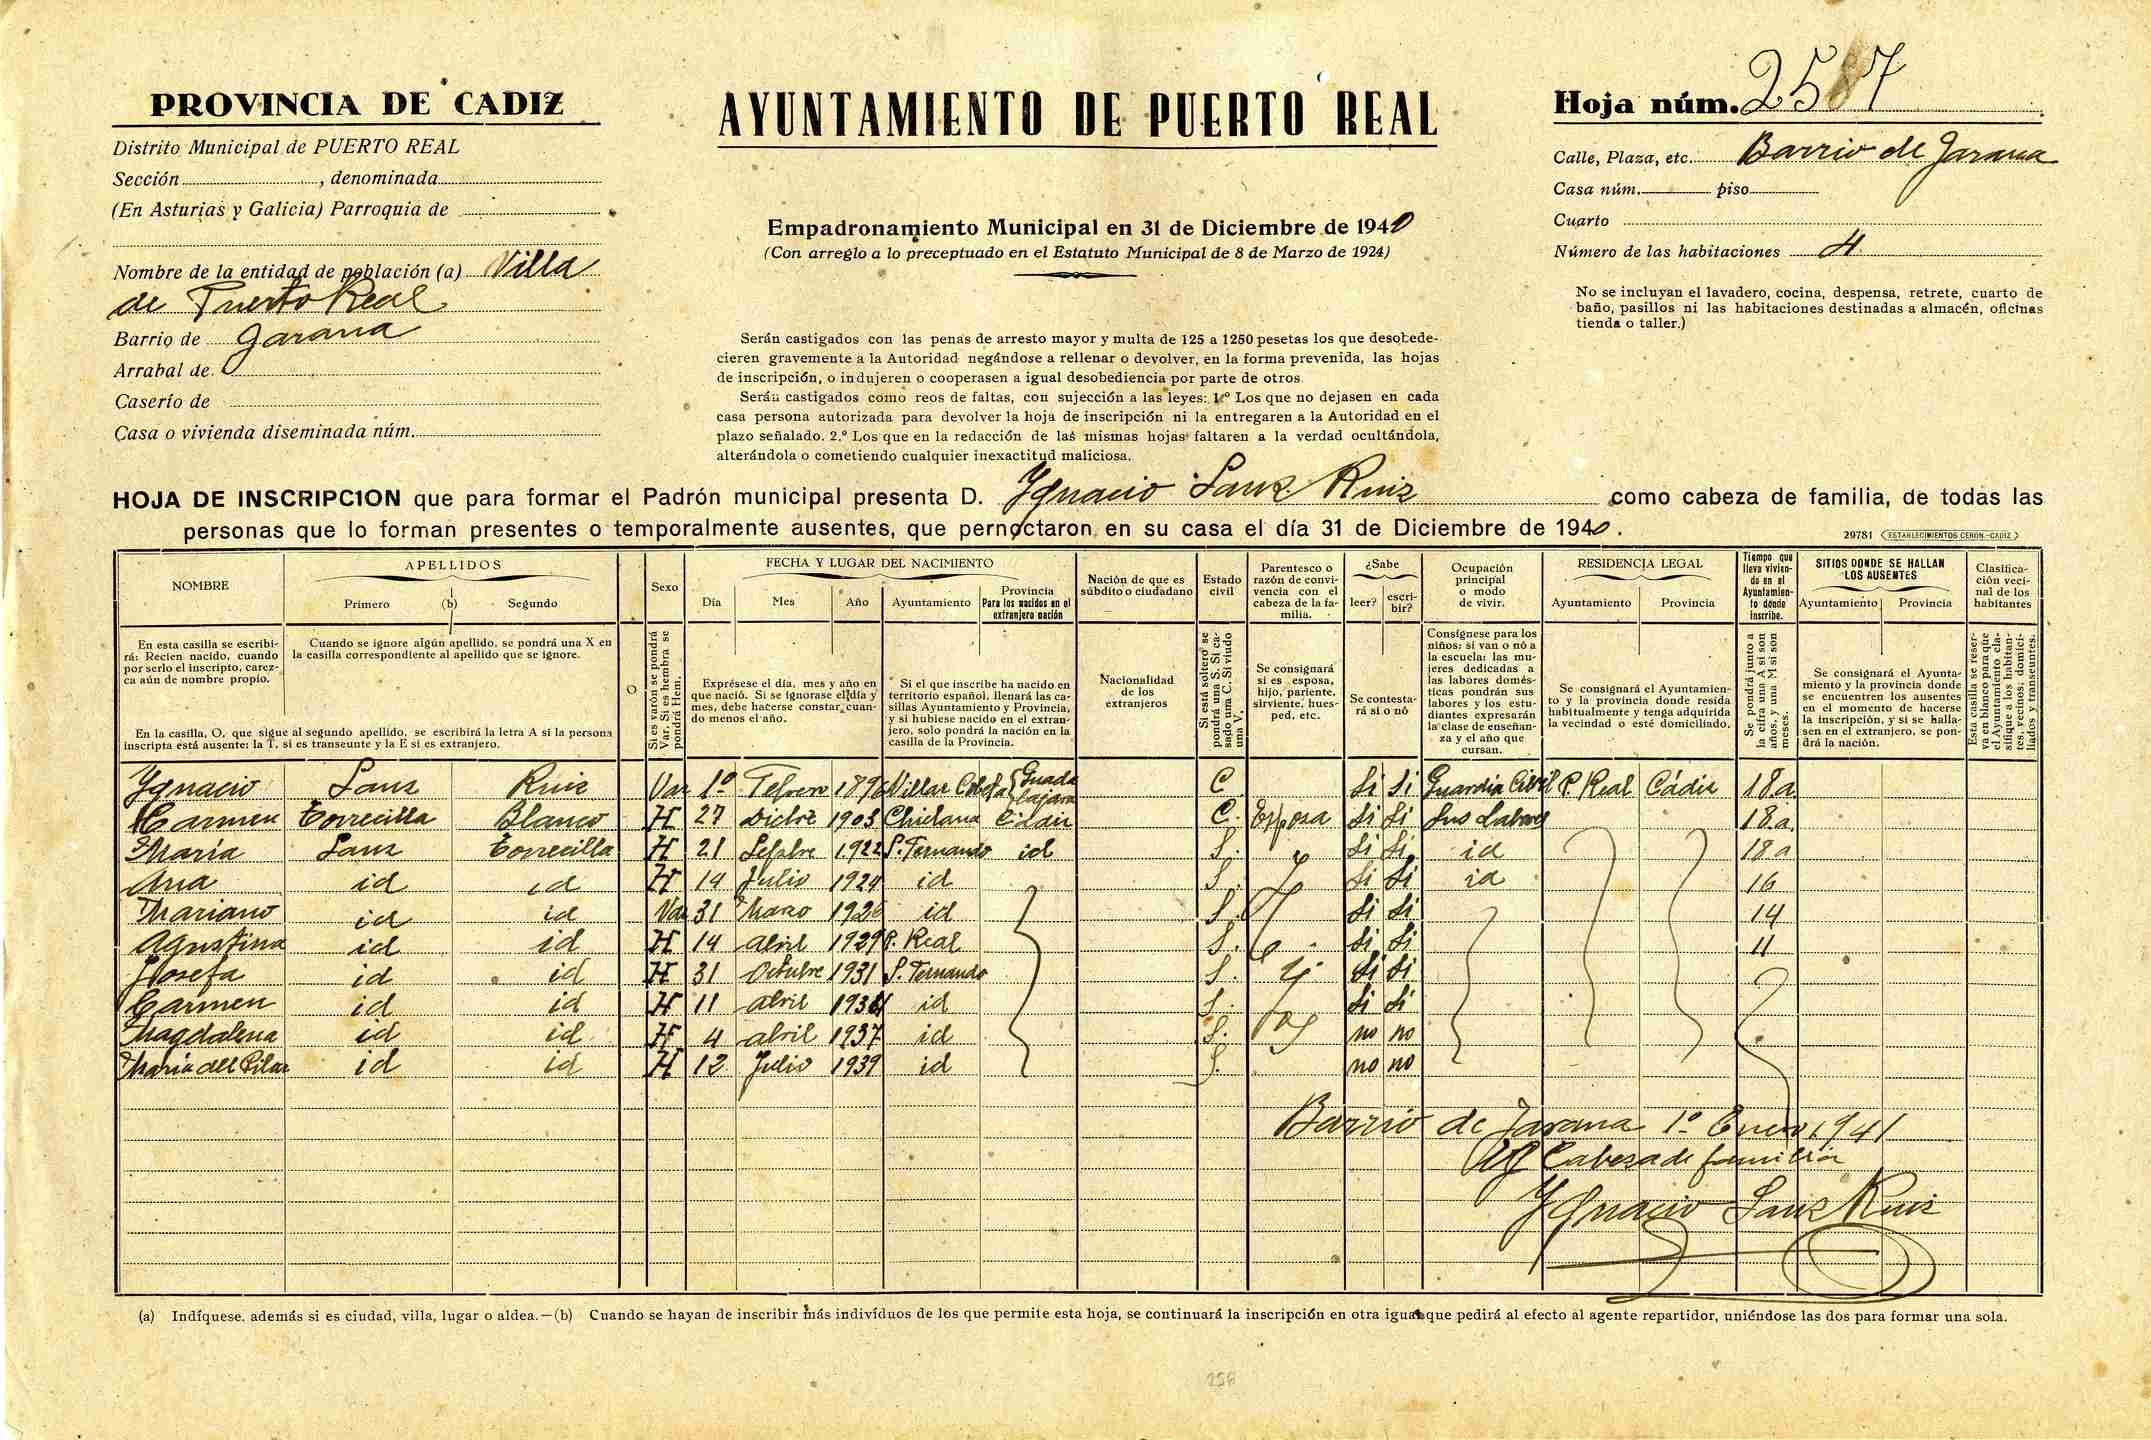 PROVINCIA DE CADIZ
Distrito Municipal de PUERTO REAL
Sección , denominada
(En Asturias y Galicia) Parroquia de
Nombre de la entidad de población (a) Villa
de Puerto Real
Barrio de Jarana
Arrabal de
Caserío de
Casa o vivienda diseminada núm.
AYUNTAMIENTO DE PUERTO REAL
Empadronamiento Municipal en 31 de Diciembre de 1940
(Con arreglo a lo preceptuado en el Estatuto Municipal de 8 de Marzo de 1924)
Serán castigados con las penas de arresto mayor y multa de 125 a 1250 pesetas los que desobede-
cieren gravemente a la Autoridad negándose a rellenar o devolver, en la forma prevenida, las hojas
de inscripción, o indujeren o cooperasen a igual desobediencia por parte de otros
Serán castigados como reos de faltas, con sujección a las leyes: 1.º Los que no dejasen en cada
casa persona autorizada para devolver la hoja de inscripción ni la entregaren a la Autoridad en el
plazo señalado. 2.º Los que en la redacción de las mismas hojas faltaren a la verdad ocultándola,
alterándola o cometiendo cualquier inexactitud maliciosa.
Hoja núm. 2587
Calle, Plaza, etc. Barrio de Jarana
Casa núm. piso
Cuarto
Número de las habitaciones 4
No se incluyan el lavadero, cocina, despensa, retrete, cuarto de
baño, pasillos ni las habitaciones destinadas a almacén, oficinas
tienda o taller.)
HOJA DE INSCRIPCION que para formar el Padrón municipal presenta D. Ygnacio Sanz Ruiz como cabeza de familia, de todas las
personas que lo forman presentes o temporalmente ausentes, que pernoctaron en su casa el día 31 de Diciembre de 1940.
29781 ESTABLECIMIENTOS CERON.-CADIZ
NOMBRE
APELLIDOS
Primero (b) Segundo
Sexo
FECHA Y LUGAR DEL NACIMIENTO
Día Mes Año Ayuntamiento
Provincia
Para los nacidos en el
extranjero nación
Nación de que es
súbdito o ciudadano
Estado
civil
Parentesco o
razón de convi-
vencia con el
cabeza de la fa-
milia.
¿Sabe
leer? escri-
bir?
Ocupación
principal
o modo
de vivir.
RESIDENCIA LEGAL
Ayuntamiento Provincia
Tiempo que
lleva vivien-
do en el
Ayuntamien-
to donde
inscribe.
SITIOS DONDE SE HALLAN
LOS AUSENTES
Ayuntamiento Provincia
Clasifica-
ción veci-
nal de los
habitantes
En esta casilla se escribi-
rá: Recien nacido, cuando
por serlo el inscripto, carez-
ca aún de nombre propio.
Cuando se ignore algún apellido, se pondrá una X en
la casilla correspondiente al apellido que se ignore.
En la casilla, O, que sigue al segundo apellido, se escribirá la letra A si la persona
inscripta está ausente: la T, si es transeunte y la E si es extranjero.
O
Si es varón se pondrá
Var. Si es hembra se
pondrá Hem.
Exprésese el día, mes y año en
que nació. Si se ignorase el día y
mes, debe hacerse constar cuan-
do menos el año.
Si el que inscribe ha nacido en
territorio español, llenará las ca-
sillas Ayuntamiento y Provincia,
y si hubiese nacido en el extran-
jero, solo pondrá la nación en la
casilla de la Provincia.
Nacionalidad
de los
extranjeros
Si está soltero se
pondrá una S. Si ca-
sado una C. Si viudo
una V.
Se consignará
si es esposa,
hijo, pariente,
sirviente, hues-
ped, etc.
Se contesta-
rá si o nó
Consígnese para los
niños: si van o nó a
la escuela: las mu-
jeres dedicadas a
las labores domés-
ticas pondrán sus
labores y los estu-
diantes expresarán
la clase de enseñan-
za y el año que
cursan.
Se consignará el Ayuntamien-
to y la provincia donde resida
habitualmente y tenga adquirida
la vecindad o esté domiciliado.
Se pondrá junto a
la cifra una A si son
años, y una M si son
meses.
Se consignará el Ayunta-
miento y la provincia donde
se encuentren los ausentes
en el momento de hacerse
la inscripción, y si se halla-
sen en el extranjero, se pon-
drá la nación.
Esta casilla se reser-
va en blanco para que
el Ayuntamiento cla-
sifique a los habitan-
tes, vecinos, domici-
liados y transeuntes.
Ygnacio Sanz Ruiz Var 1º Febrero 1896 Villar Cobeta Guada lajara C Si Si Guardia Civil P. Real Cádiz 18 a.
Carmen Torrecilla Blanco H 27 Dicbre 1903 Chiclana Cádiz C. Esposa Si Si Sus Labores 18 a.
Maria Sanz Torrecilla H 21 Sepbre 1.922 S. Fernando id S. Si Si id 18 a
Ana id id H 14 Julio 1924 id S. Si Si id 16
Mariano id id Var 31 Marzo 1926 id S. Si Si 14
Agustina id id H 14 abril 1929 P. Real S. Si Si 11
Josefa id id H 31 Octubre 1931 S. Fernando S. Si Si
Carmen id id H 11 abril 1934 id S. Si Si
Magdalena id id H 4 abril 1937 id S. no no
Maria del Pilar id id H 12 Julio 1939 id S. no no
Barrio de Jarana 1º Enero 1941
Cabeza de familia
Ygnacio Sanz Ruiz
(a) Indíquese. además si es ciudad, villa, lugar o aldea.—(b) Cuando se hayan de inscribir más indivíduos de los que permite esta hoja, se continuará la inscripción en otra igual que pedirá al efecto al agente repartidor, uniéndose las dos para formar una sola.
258